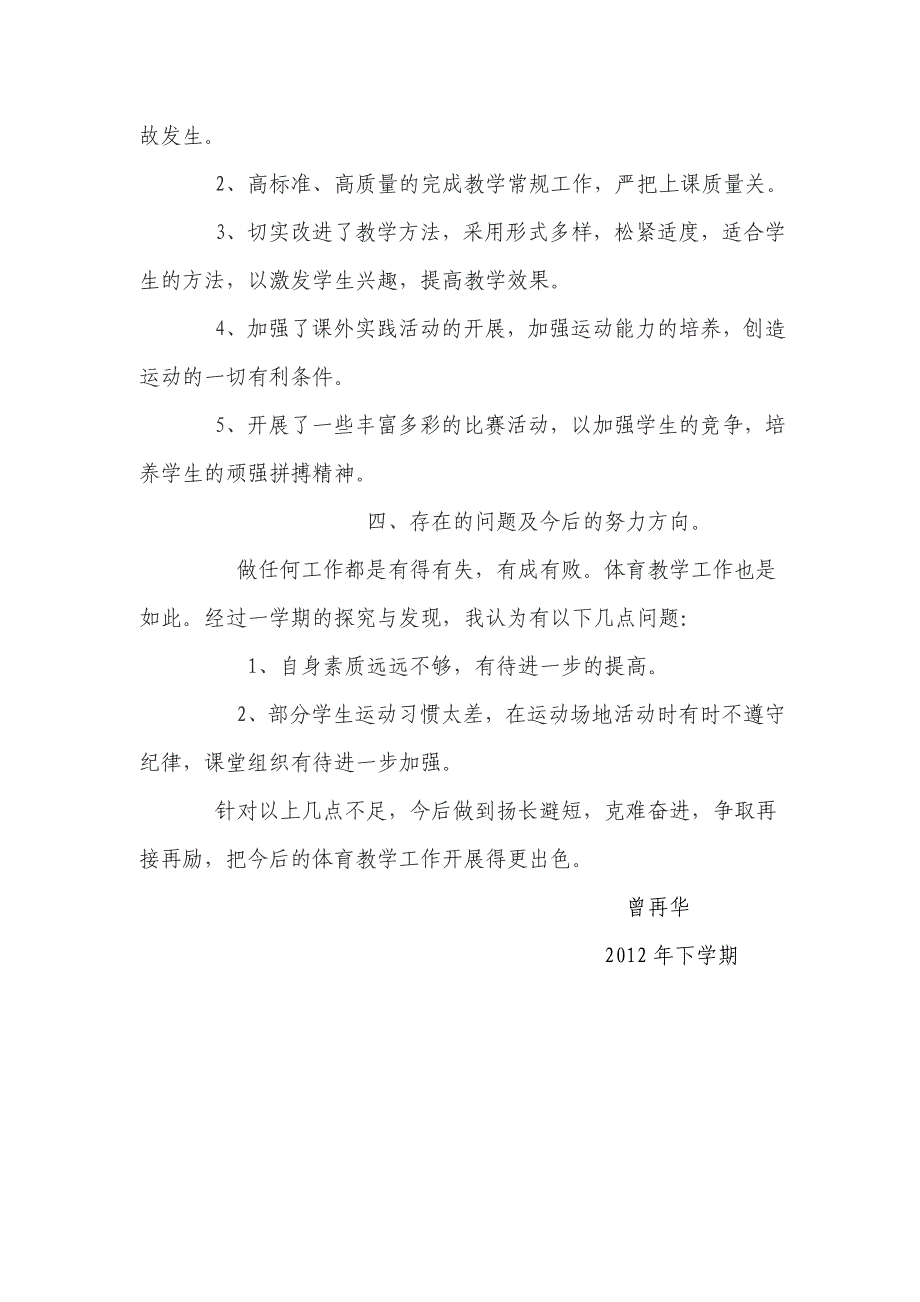 故发生。
2、高标准、高质量的完成教学常规工作，严把上课质量关。
3、切实改进了教学方法，采用形式多样，松紧适度，适合学
生的方法，以激发学生兴趣，提高教学效果。
4、加强了课外实践活动的开展，加强运动能力的培养，创造
运动的一切有利条件。
5、开展了一些丰富多彩的比赛活动，以加强学生的竞争，培
养学生的顽强拼搏精神。
四、存在的问题及今后的努力方向。
做任何工作都是有得有失，有成有败。体育教学工作也是
如此。经过一学期的探究与发现，我认为有以下几点问题：
1、自身素质远远不够，有待进一步的提高。
2、部分学生运动习惯太差，在运动场地活动时有时不遵守
纪律，课堂组织有待进一步加强。
针对以上几点不足，今后做到扬长避短，克难奋进，争取再
接再励，把今后的体育教学工作开展得更出色。
曾再华
2012年下学期